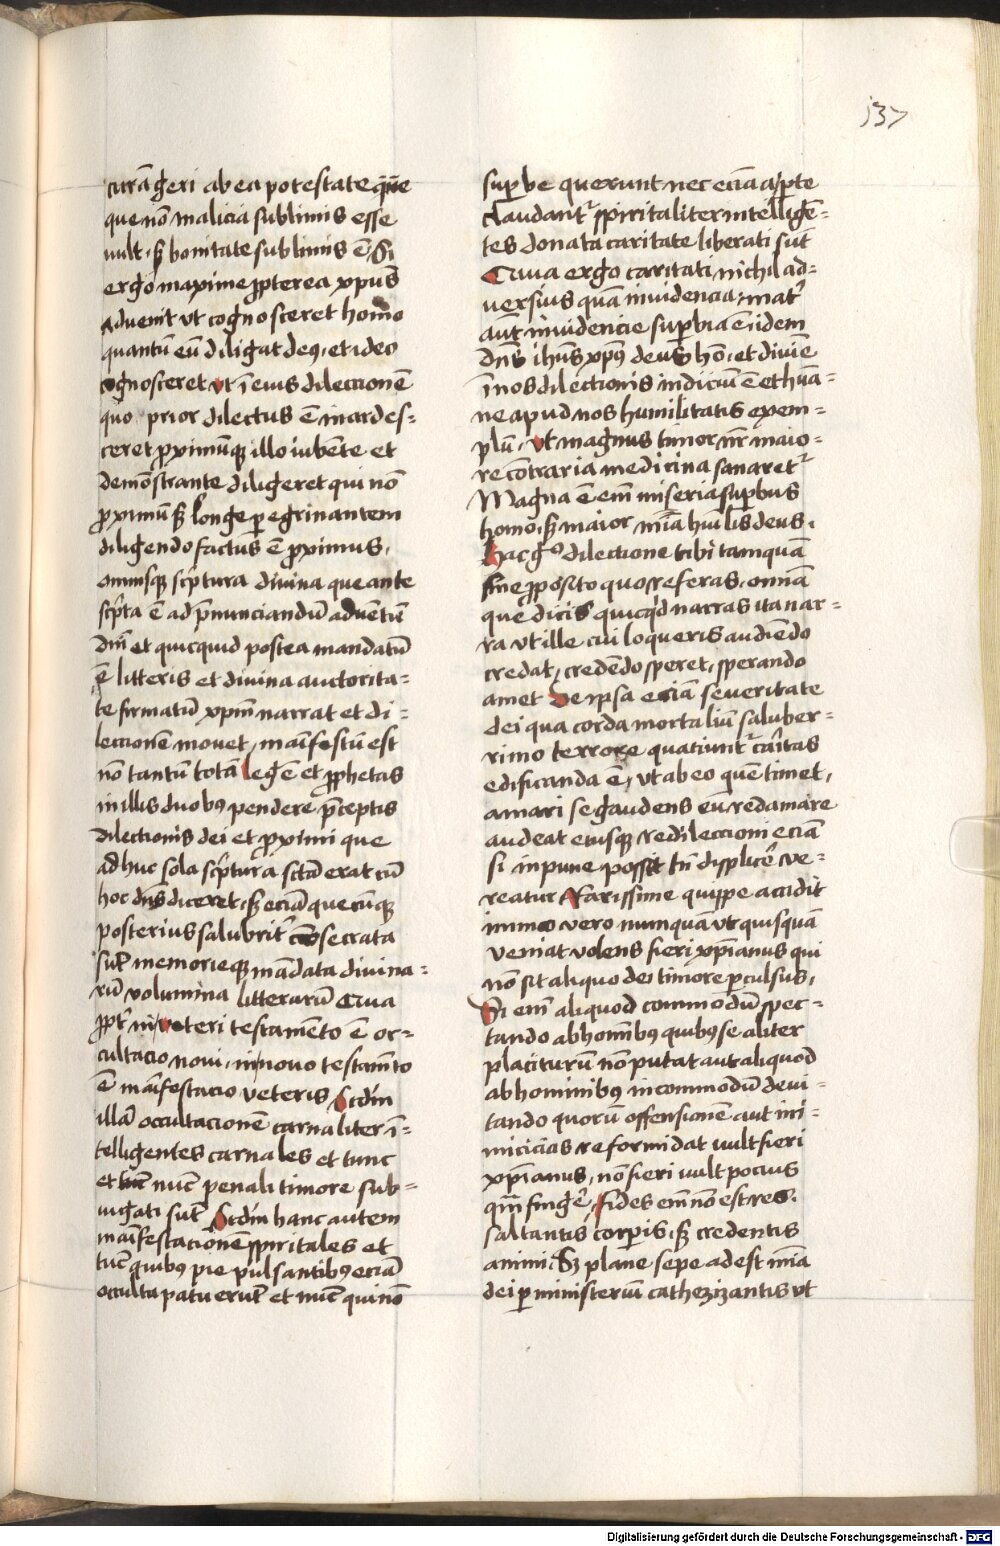 137
curā geri ab ea potestate q̄ue
que nō malicia sublimis esse
vult · sꝫ bonitate sublimis ē / Si
ergo maxime ꝓpterea xp̄us
aduenit vt cognosceret homo
quantū eū diligat deꝰ · et ideo
cognosceret vt ī eius dilectionē
quo prior dilectus ē inardes-
ceret proximūqꝫ illo iubēte et
demōstrante diligeret qui nō
proximū sꝫ longe peregrinantem
diligendo factus ē proximus ·
omnisqꝫ scp̄tura diuina que ante
scp̄ta ē ad p̄nunciandū aduentū
dn̄i et quicquid postea mandatū
ē litteris et diuina auctorita-
te firmatū xp̄m narrat et di-
lectionem mouet / māifestū est
nō tantū totā legē et ꝓphetas
in illis duobꝰ pendere p̄ceptis
dilectionis dei et proximi que
adhuc sola scp̄tura sctā erat cū
hoc dn̄s diceret · sꝫ eciā quecūqꝫ
posterius salubrit̄ cōsecrata
sūt memorieqꝫ mādata diuina-
rū volumina litterarū Qua
ꝓpt̄ in veteri testamēto ē oc-
cultacio noui · in nouo testam̄to
ē māifestacio veteris / Scd̄m
illā occultacionē carnaliter ī-
telligentes carnales et tunc
et nūc penali timore sub-
iugati sūt Scd̄m hanc autem
māifestacionē spiritales et
tūc quibꝰ pie pulsantibꝰ eciā
occulta patuerūt et nūc qui nō
suꝑbe querunt nec eciā aꝑte
claudant᷑ spiritaliter intelligē-
tes donata caritate liberati sūt
Quia ergo caritati nichil ad-
uersius quā inuidencia / mat̄
aūt inuidencie suꝑbia ē · idem
dn̄s ih̄us xp̄us deus hō · et diuīe
ī nos dilectionis indiciū ē et hūa-
ne apud nos humilitatis exem-
plū / vt magnus timor nr̄ maio-
re cōtraria medicina sanaret᷑
Magna ē em̄ miseria suꝑbus
homo · sꝫ maior mīa hūilis deus ·
hac gͦ dilectione tibi tamquā
fine ꝓposito quo referas omnia
que dicis quicq̄d narras ita nar-
ra vt ille cui loqueris audiēdo
credat / credēdo speret / sperando
amet De ipsa eciā seueritate
dei qua corda mortaliū saluber-
rimo terrore quatiunt᷑ cāritas
edificanda ē / vt ab eo quē timet /
amari se gaudens eū redamare
audeat eiusqꝫ in dileccioni eciā
si inpune possit tn̄ displicē ve-
reatur Rarissime quippe accidit
immo vero numquā vt quisquā
veniat volens fieri xp̄ianus qui
nō sit aliquo dei timore ꝑculsus ·
Si em̄ aliquod commodū spec-
tando ab hom̄ibꝰ quibꝰ se aliter
placiturū nō putat aut aliquod
ab hominibꝰ incommodū deui-
tando quorū offensionē aut ini-
micicias reformidat vult fieri
xp̄ianus / nō fieri vult pocius
quā fingē / fides em̄ non est res ·
saltantis corꝑis · sꝫ credentis
animi · Sꝫ plane sepe adest mīa
dei ꝑ ministeriū cathezizantis vt
Digitalisierung gefördert durch die Deutsche Forschungsgemeinschaft - DFG